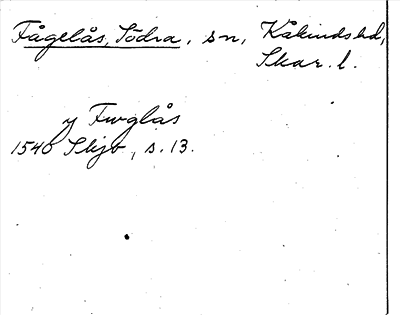 Fågelås, Södra, sn, Kåkindshd,
Skar. l.
y Fwglås
1540 Skjb, s. 13.